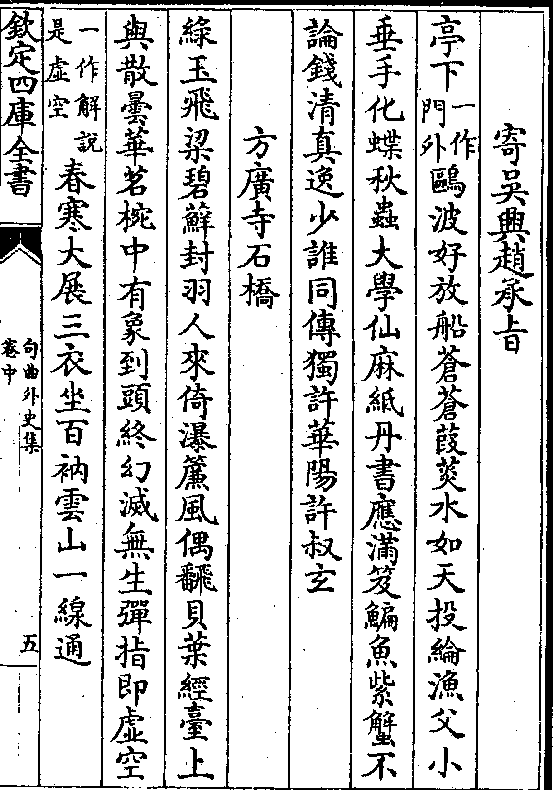 寄吳興趙承旨
亭下一作門外鷗波好放船蒼蒼葭菼水如天投綸漁父小
垂手化蝶秋蟲大學仙麻紙丹書應滿笈鯿魚紫蟹不
論錢清真逸少誰同傳獨許華陽許叔玄
方廣寺石橋
綠玉飛梁碧蘚封羽人來倚瀑簾風偶翻貝葉經臺上
與散曇華茗椀中有象到頭終幻滅無生彈指即虛空
一作解說是虛空春寒大展三衣坐百衲雲山一線通
欽定四庫全書
句曲外史集
卷中
五